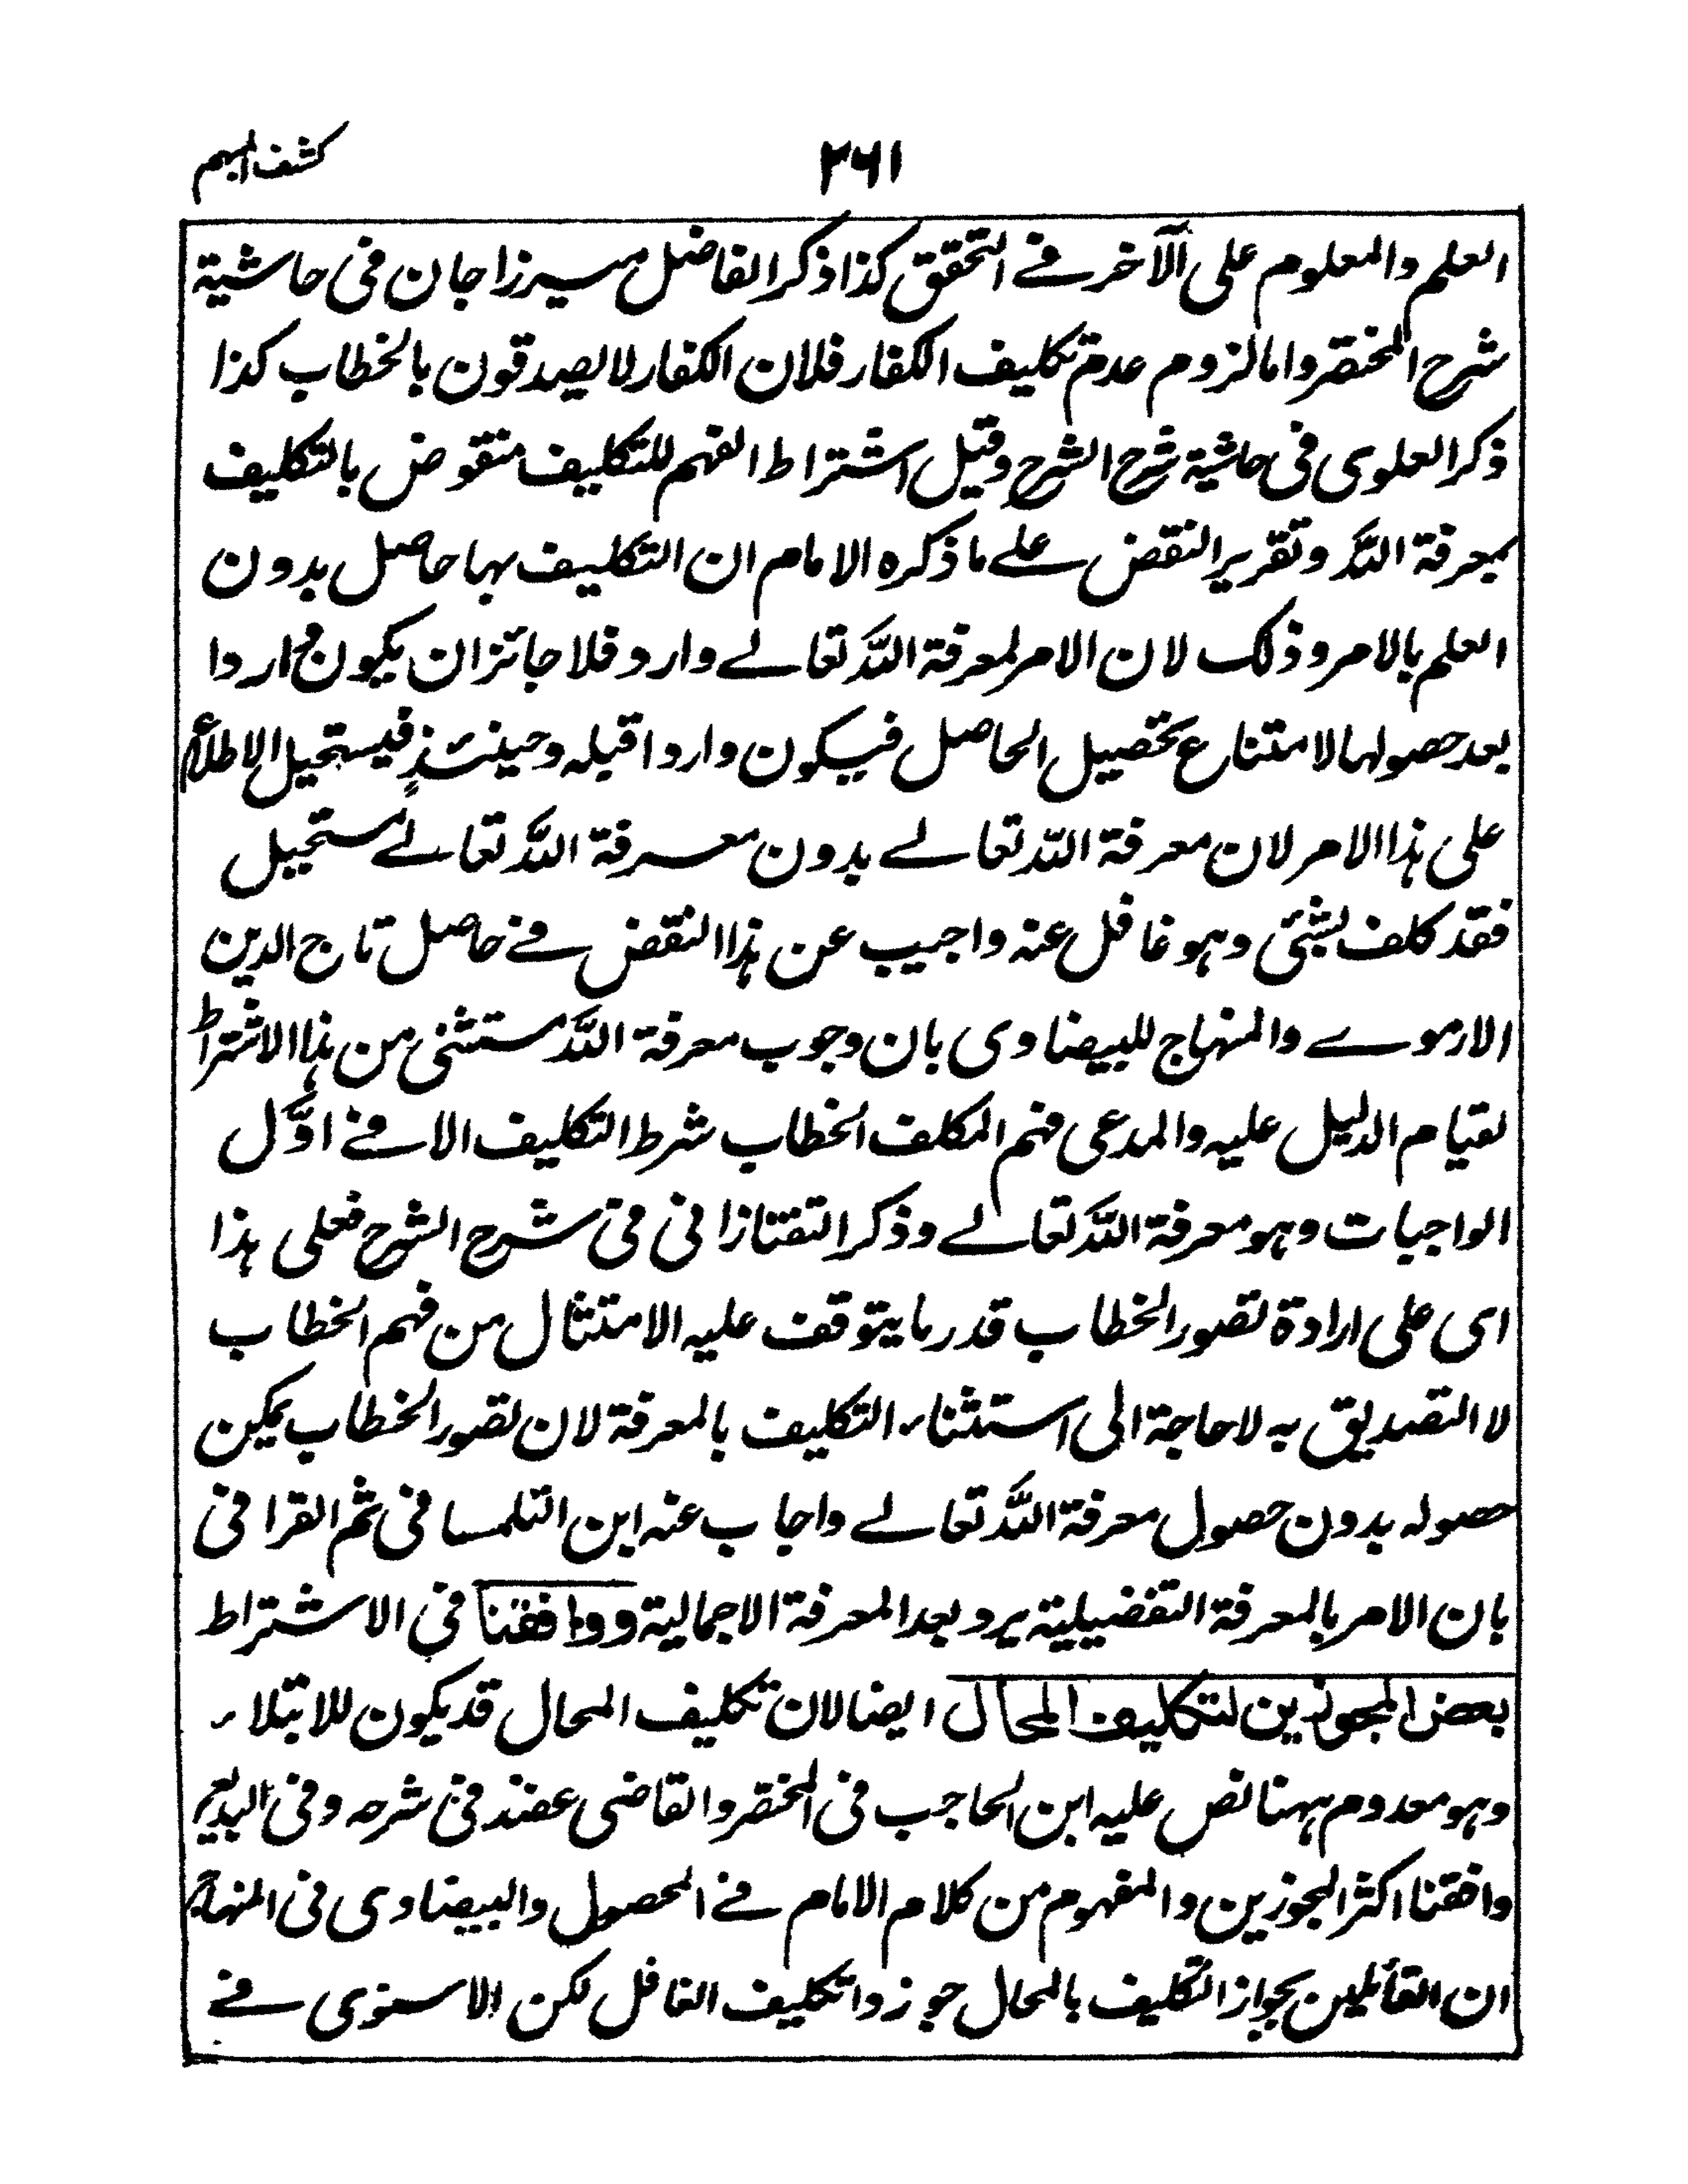 كشف المبهم
٢٦١
العلم والمعلوم على الآخر فى التحقق كذا ذكر الفاضل ميرزا جان فى حاشية
شرح المختصر واما لزوم عدم تكليف الكفار فلان الكفار لا يصدقون بالخطاب كذا
ذكر العلوى فى حاشية شرح الشرح وقيل اشتراط الفهم للتكليف منقوض بالتكليف
بمعرفة الله وتقرير النقض على ما ذكره الامام ان التكليف بها حاصل بدون
العلم بالامر وذلك لان الامر لمعرفة الله تعالى وارد فلا جائز ان يكون واردا
بعد حصولها لامتناع تحصيل الحاصل فيكون واردا قبله وحينئذٍ فيستحيل الاطلاع
على هذا الامر لان معرفة الله تعالى بدون معرفة الله تعالى مستحيل
فقد كلف بشئ وهو غافل عنه واجيب عن هذا النقض فى حاصل تاج الدين
الارموى والمنهاج للبيضاوى بان وجوب معرفة الله مستثنى من هذا الاشتراط
لقيام الدليل عليه والمدعى فهم المكلف الخطاب شرط التكليف الا فى اوّل
الواجبات وهو معرفة الله تعالى وذكر التفتازانى فى شرح الشرح فعلى هذا
اى على ارادة تصور الخطاب قدر ما يتوقف عليه الامتثال من فهم الخطاب
لا التصديق به لا حاجة الى استثناء التكليف بالمعرفة لان تصور الخطاب يمكن
حصوله بدون حصول معرفة الله تعالى واجاب عنه ابن التلمسانى ثم القرافى
بان الامر بالمعرفة التفضيلية يرد بعد المعرفة الاجمالية ووافقنا فى الاشتراط
بعض المجوزين لتكليف المحال ايضا لان تكليف المحال قد يكون للابتلاء
وهو معدوم ههنا نص عليه ابن الحاجب فى المختصر والقاضى عضد فى شرحه وفى البديع
وافقنا اكثر المجوزين والمفهوم من كلام الامام فى المحصول والبيضاوى فى المنهاج
ان القائلين بجواز التكليف بالمحال جوزوا تكليف الغافل لكن الاسنوى فى